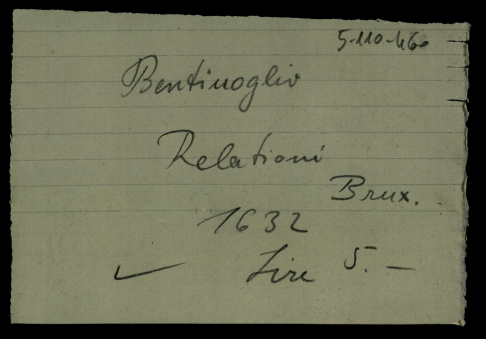 5-110-460
Bentivoglio
Relationi
Brux.
1632
Lire 5.—